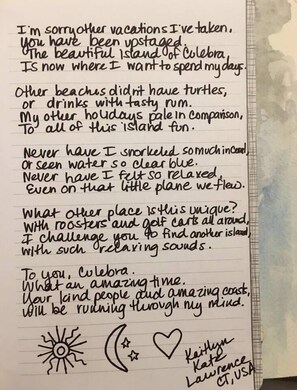 I'm sorry other vacations I've taken,
you have been upstaged.
The beautiful island of Culebra,
Is now where I want to spend my days.
Other beaches didn't have turtles,
or drinks with tasty rum.
My other holidays pale in comparison,
To all of this island fun.
Never have I snorkeled so much in coral,
or seen water so clear blue.
Never have I felt so relaxed,
Even on that little plane we flew.
What other place is this unique?
With roosters and golf carts all around,
I challenge you to find another island,
with such relaxing sounds.
To you, Culebra.
What an amazing time.
Your kind people and amazing coasts,
will be running through my mind.
Kaitlyn
Kate
Lawrence
CT, USA